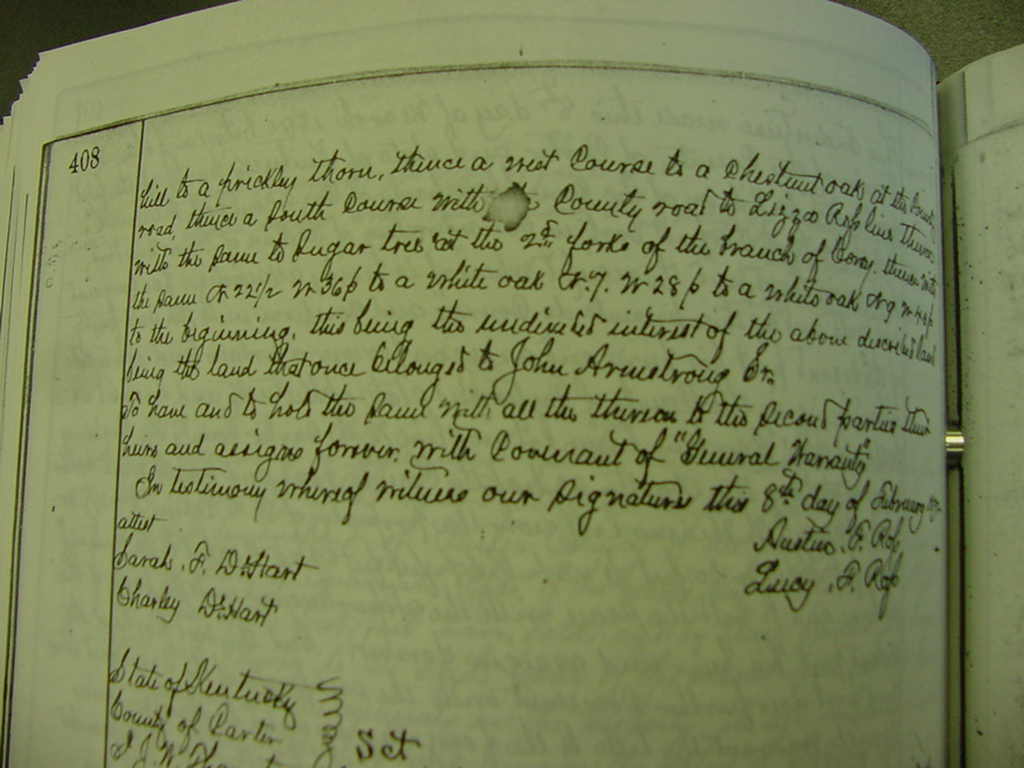 408
hill to a prickley thorn, thence a west Course to a Chestnut oak at the County
road, thence a South Course with County road to Lizzo Ross line thence
with the same to Sugar tree at the 2nd forks of the branch of thence with
the same N 22 1/2 W 36 p to a white oak N. 7. W 28 p to a white oak N 9 W
to the beginning, this being the undivided interest of the above described land
being the land that once bellonged to John Armstrong Sr.
To have and to hold the same with all the thereon to the second parties their
heirs and assigns forever, with Covenant of "General Warranty"
In testimony whereof witness our signatures this 8th day of February
attest
Austin. F. Ross
Sarah. F. DeHart
Lucy. F. Ross
Charley DeHart
State of Kentucky
County of Carter
Sct
I J. W.